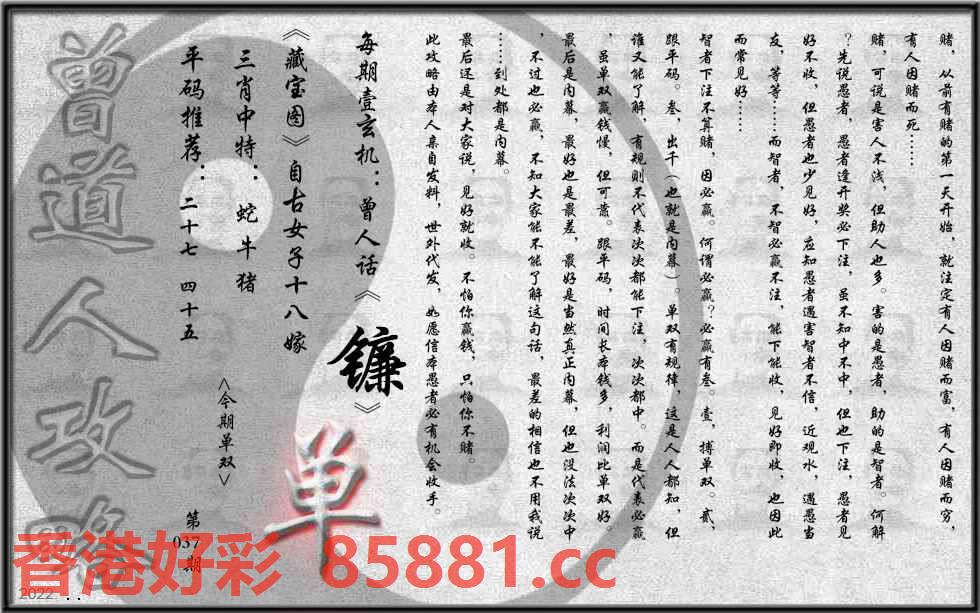 赌，从前有赌的第一天开始，就注定有人因赌而富，有人因赌而穷，
有人因赌而死……
赌，可说是害人不浅，但助人也多。害的是愚者，助的是智者。何解
？先说愚者，愚者逢开奖必下注，虽不知中不中，但也下注，愚者见
好不收，但愚者也少见好，应知愚者遇害智者不信，近观水，遇愚当
友，等等……而智者，不智必赢不注，能下能收，见好即收，也因此
而常见好……
智者下注不算赌，因必赢。何谓必赢？必赢有叁。壹，搏单双。贰，
跟平码。叁，出千（也就是内幕）。单双有规律，这是人人都知，但
谁又能了解，有规则不代表次次都能下注，次次都中。而是代表必赢
，虽单双赢钱慢，但可靠。跟平码，时间长本钱多，利润比单双好。
最后是内幕，最好也是最差，最好是当然真正内幕，但也没法次次中
，不过也必赢，不知大家能不能了解这句话，最差的相信也不用我说
……到处都是内幕。
最后还是对大家说，见好就收。不怕你赢钱，只怕你不赌。
此攻略由本人亲自发料，世外代发，如愿信本愚者必有机会收手。
每期壹玄机：曾人话《镰》
《藏宝图》自古女子十八嫁
三肖中特：蛇牛猪
平码推荐：二十七 四十五
<今期单双>
单
第
037
期
曾道人攻略
香港好彩 85881.cc
2022